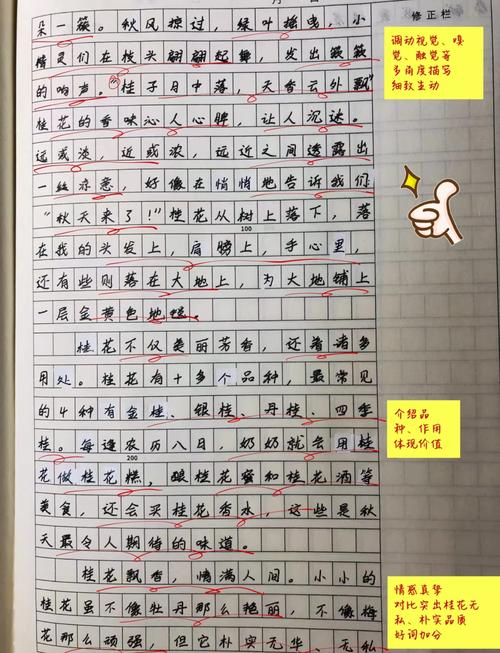 月
修正栏
朵一簇。秋风掠过，绿叶摇曳，小
精灵们在枝头翩翩起舞，发出簌簌
的响声。"桂子月中落，天香云外飘"
桂花的香味沁人心脾，让人沉迷。
远或淡，近或浓，远近之间透露出
一丝凉意，好像在悄悄地告诉我们
"秋天来了！"桂花从树上落下，落
100
在我的头发上，肩膀上，手心里，
还有些则落在大地上，为大地铺上
一层金黄色地毯。
桂花不仅美丽芳香，还有诸多
用处。桂花有十多个品种，最常见
的4种有金桂、银桂、丹桂、四季
桂。每逢农历八日，奶奶就会用桂
200
花做桂花糕，酿桂花蜜和桂花酒等
美食，还会买桂花香水，这些是秋
天最令人期待的味道。
桂花飘香，情满人间。小小的
桂花虽不像牡丹那么艳丽，不像梅
花那么顽强，但它朴实无华、无私
调动视觉、嗅
觉、触觉等
多角度描写
细致生动
介绍品
种、作用
体现价值
情感真挚
对比突出桂花无
私、朴实品质
好词加分